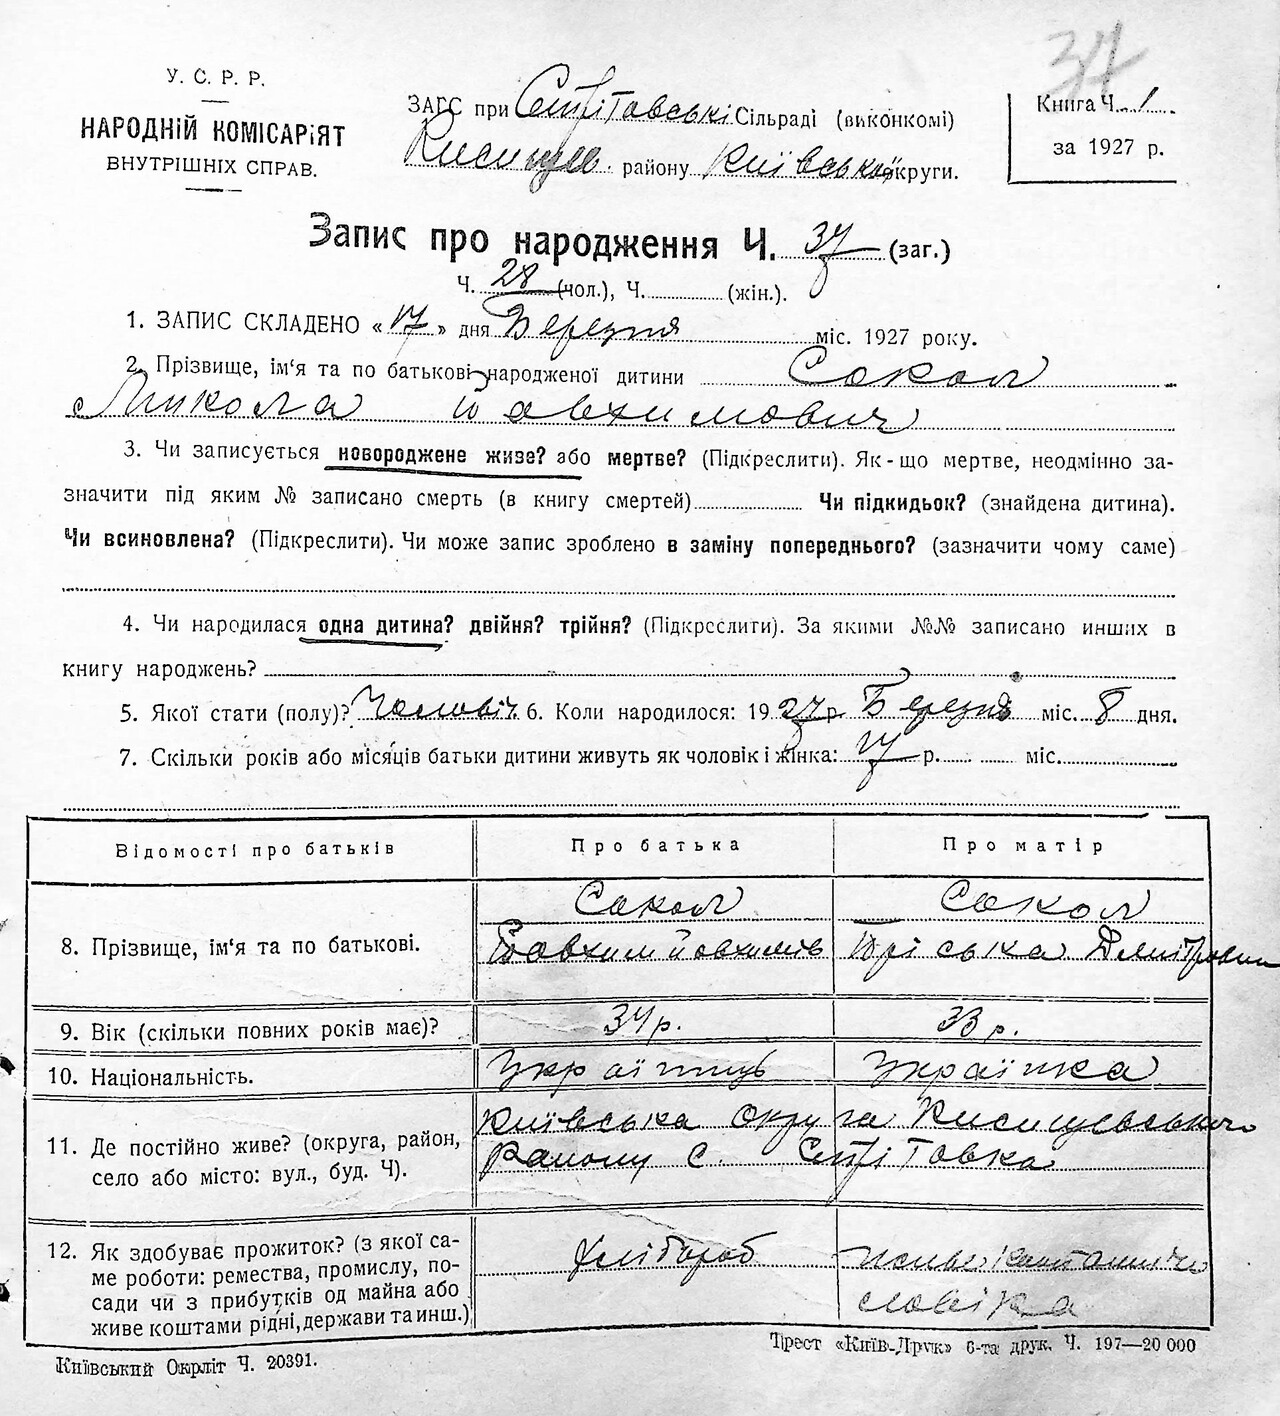 37
У. С. Р. Р.
НАРОДНІЙ КОМІСАРІЯТ
ВНУТРІШНІХ СПРАВ.
ЗАГС при Ситрітавські Сільраді (виконкомі)
району Київської округи.
Книга Ч. 1
за 1927 р.
Запис про народження Ч. 37 (заг.)
Ч. 28 (чол.), Ч. (жін.).
1. ЗАПИС СКЛАДЕНО «17» дня Березня міс. 1927 року.
2. Прізвище, ім'я та по батькові народженої дитини Сокол
Микола Йавхимович
3. Чи записується новороджене живе? або мертве? (Підкреслити). Як-що мертве, неодмінно за-
значити під яким № записано смерть (в книгу смертей) Чи підкидьок? (знайдена дитина).
Чи всиновлена? (Підкреслити). Чи може запис зроблено в заміну попереднього? (зазначити чому саме)
4. Чи народилася одна дитина? двійня? трійня? (Підкреслити). За якими №№ записано инших в
книгу народжень?
5. Якої стати (полу)? Чоловіч. 6. Коли народилося: 1927 р. Березня міс. 8 дня.
7. Скільки років або місяців батьки дитини живуть як чоловік і жінка: 17 р. міс.
Відомості про батьків Про батька Про матір
Сокол Сокол
8. Прізвище, ім'я та по батькові. Йавхим Йовхимів Пріська Дмитровна
9. Вік (скільки повних років має)? 34 р. 33 р.
10. Національність. Українець Українка
Київська округа
11. Де постійно живе? (округа, район, Району с.
село або місто: вул., буд. Ч).
12. Як здобуває прожиток? (з якої са-
ме роботи: ремества, промислу, по- хлібороб
сади чи з прибутків од майна або
живе коштами рідні, держави та инш.) чоловіка
Київський Окрліт Ч. 20391.
Трест «Київ-Друк» 6-та друк. Ч. 197—20 000